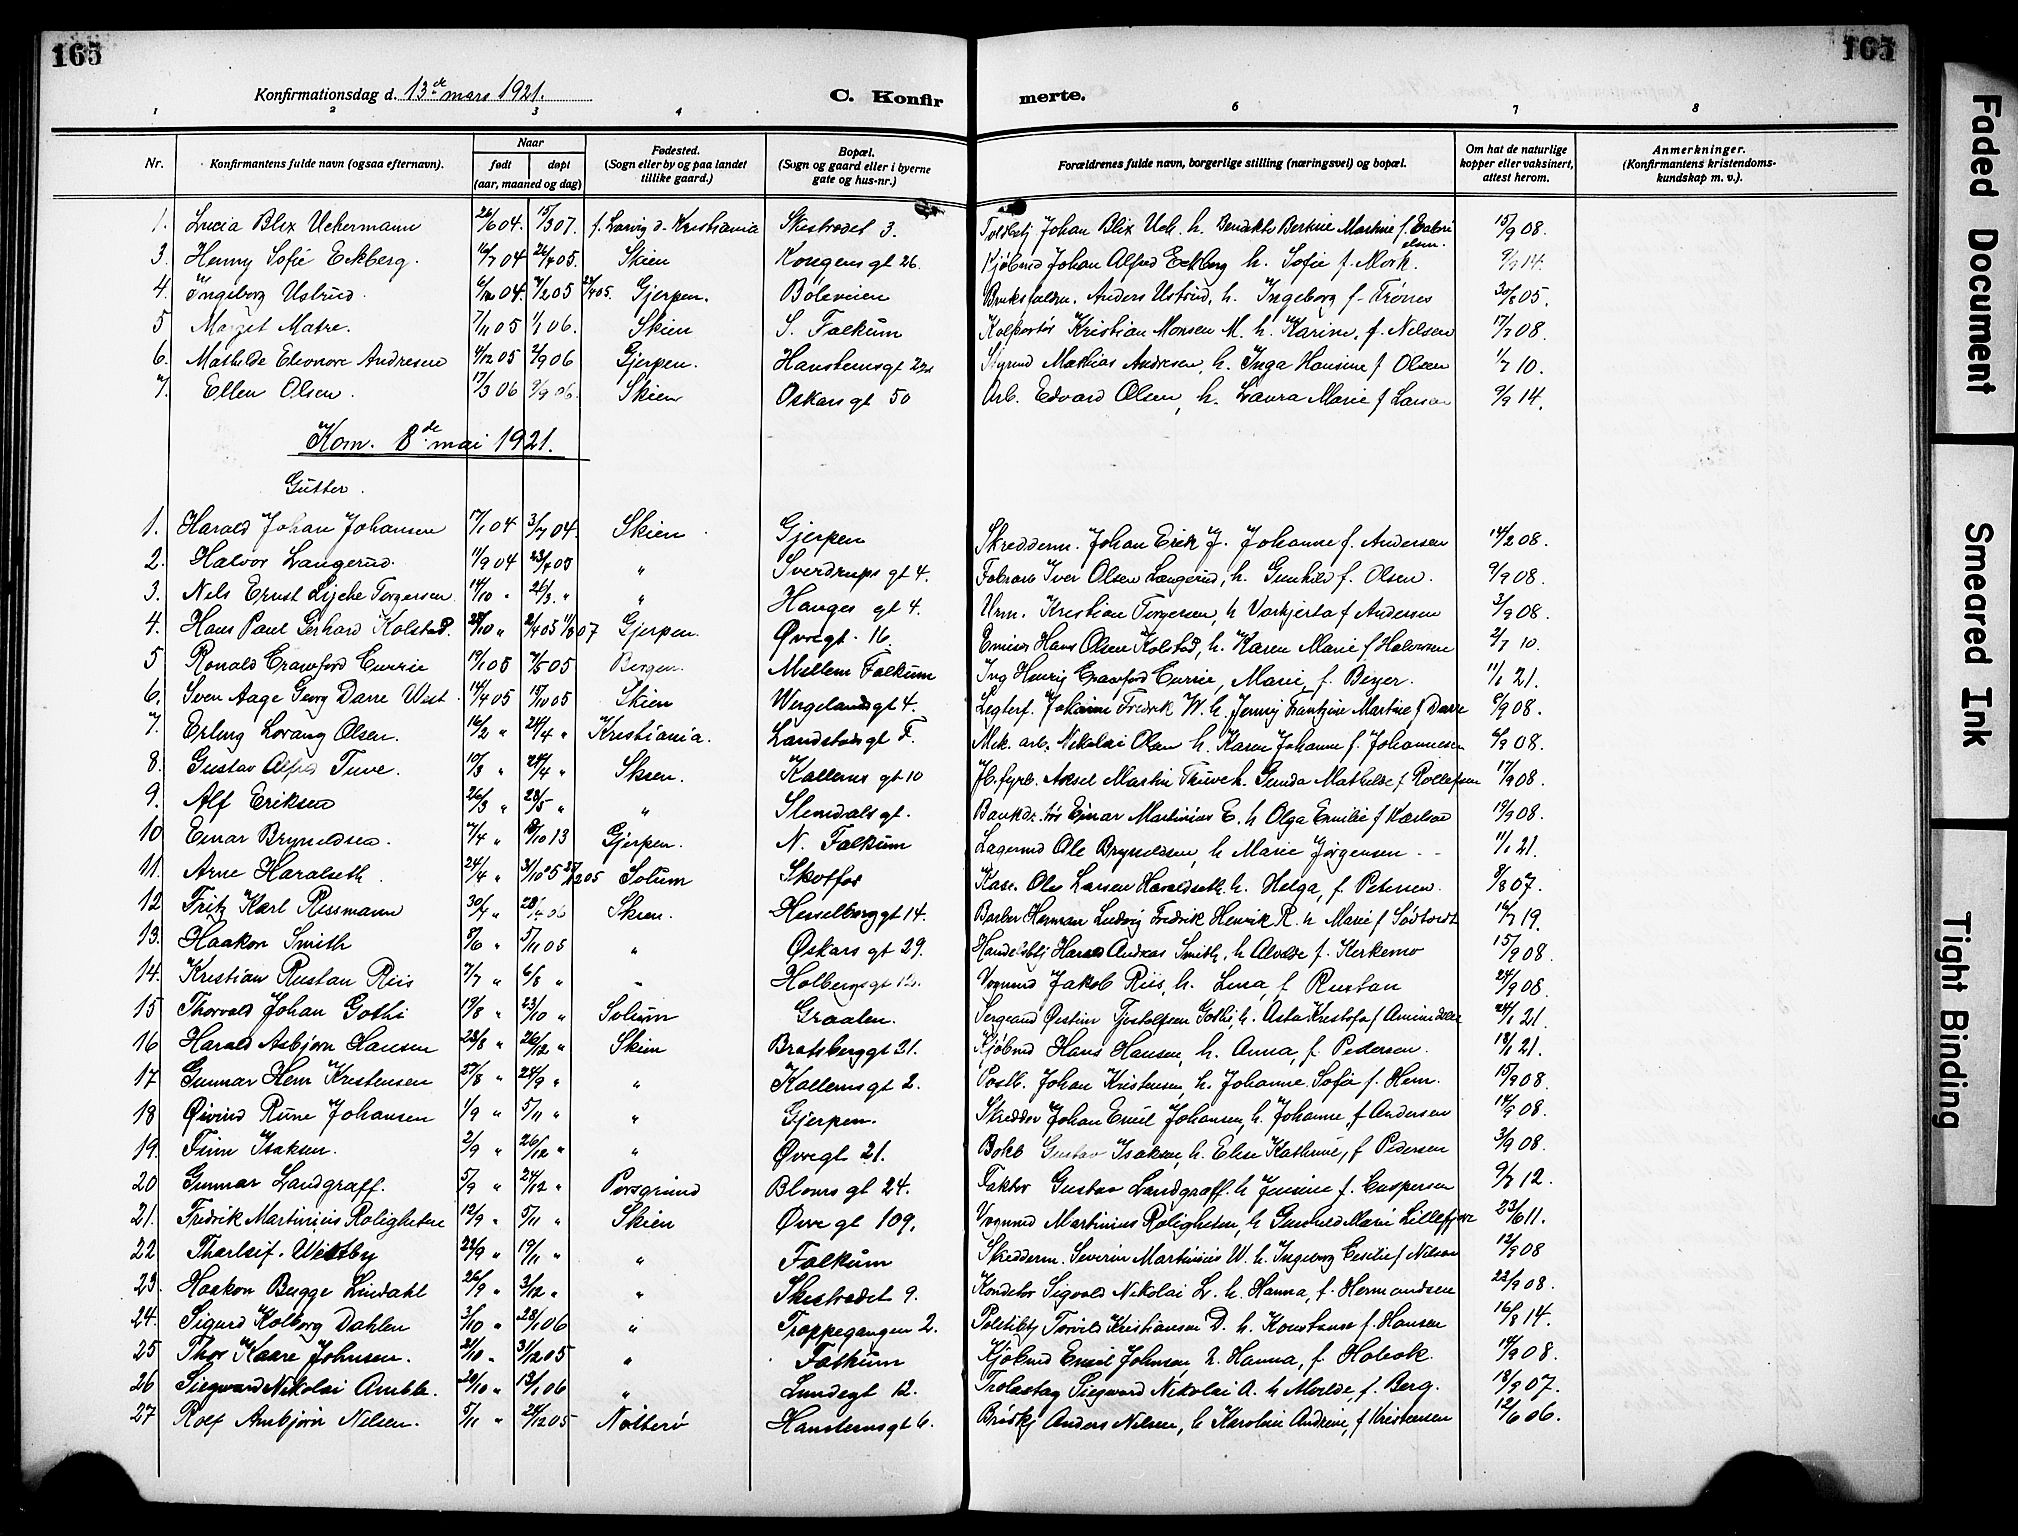 165
165
Konfirmationsdag d. 13de mars 1921.
C. Konfir
merte.
1 2 3 4 5 6 7 8
Nr. Konfirmantens fulde navn (ogsaa efternavn). Naar født døpt (aar, maaned og dag) Fødested. (Sogn eller by og paa landet tillike gaard.) Bopæl. (Sogn og gaard eller i byerne gate og hus-nr.) Forældrenes fulde navn, borgerlige stilling (næringsvei) og bopæl. Om hat de naturlige kopper eller vaksinert, attest herom. Anmerkninger. (Konfirmantens kristendoms- kundskap m. v.).
1. Lucia Blix Uchermann 26/6 04. 15/3 07. Kristiania Skistredet 3. Johan Blix Uch. h. Martine f. 15/9 08.
3. Henny Sofie Eckberg. 16/7 04 26/7 05. Skien Kongensgt 26. Kjøbmd Johan Alfred Eckberg h. Sofie f. Mork. 9/9 14.
4. Ingeborg Ustrud. 6/12 04. 7/2 05 Gjerpen. Böleveien Anders Ustrud, h. Ingeborg f. Trönes 30/8 05.
5 Margit Matre. 7/11 05 1/1 06. Skien S. Falkum Kolportør Kristian Monsen M. h. Karine, f. Nelsen 17/7 08.
6. Mathilde Eleonore Andresen 4/12 05 2/9 06 Gjerpen. Hansteensgt Mathias Andresen, h. Inga Hansine f Olsen 1/7 10.
7. Ellen Olsen. 17/3 06 2/9 06. Skien Oskarsgt 50 Arb. Edvard Olsen, h. Laura Marie f Larsen 9/9 14.
Kom. 8de mai 1921.
Gutter.
1. Harald Johan Johansen 17/1 04 3/7 04. Skien Gjerpen Skredderm. Johan Erik J. Johanne f. Andersen 14/2 08.
2. Halvor Langerud. 11/9 04 " Sverdrups gt 4. Iver Olsen Langerud, h. Gunhild f. Olsen. 9/9 08.
3. Nils Ernst Lyche Torgersen 14/10 " 26/3 " " Hauges gt 4. Urm. Kristian Torgersen, h f Andersen 3/9 08.
4. Hans Paul Gerhard Kolstad. 28/10 " 2/4 05 Gjerpen. Øvregt. 16. Hans Olsen Kolstad, h. Karen Marie f Halvorsen 2/7 10.
5 Ronald Crawford Currie 19/1 05 7/5 05 Bergen. Mellem Falkum Ing Henrig Crawford Currie, Marie f. Beyer. 11/1 21.
6. Sven Aage Georg Darre Wist 14/4 05 15/10 05 Skien Wergelandsgt 4. Fredrik W. h. Jenny Martine f Darre 6/9 08.
7. Erling Lorang Olsen. 16/2 " 24/4 " Kristiania. Landstadsgt F. Mek. arb. Nikolai Olsen h. Karen Johanne f. Johannesen 6/9 08.
8. Gustav Alfred Tuve. 10/3 " 24/4 " Skien. Kallems gt 10 Aksel Martin h. Gunda Mathilde f. Rollefsen 17/9 08.
9. Alf Eriksen 26/3 " 28/5 " " Slemdalsgt. Einar Martinius E. h Olga Emilie f Karlson 19/9 08.
10 Einar Brynildsen. 7/4 " /10 13 Gjerpen. N. Falkum Ole Brynildsen, h Marie Jørgensen 11/1 21.
11. Arne Haraldseth 24/4 " 3/10 05 Solum Skotfos Ole Larsen Haraldseth h. Helga, f. Petersen. 9/8 07.
12 Fritz Karl Rissmann 30/4 " Skien. Hesselberggt 14. Barber Herman Ludvig Fredrik Henrik R. h Marie f 16/7 19.
13. Haakon Smith 8/6 " 5/11 05 " Oskars gt 29. Andreas Smith, h f. Kirkemo 15/9 08.
14. Kristian Rustan Riis 7/7 " 6/8 " " Holbergsgt 12. Vognmd Jakob Riis, h. Lina f Rustan 24/9 08.
15 Thorvald Johan Gothi 19/8 " 23/10 " Solum Graaten. 24/1 21.
16 Harald Asbjørn Hansen 23/8 " 26/12 " Skien Bratsberggt 21. Kjøbmd Hans Hansen, h. Anna, f. Pedersen. 18/1 21.
17 Gunnar Hem Kristensen 27/8 " 24/9 " " Kallemsgt 2. Postb. Johan Kristensen, h. Johanne Sofie f. Hem. 15/9 08.
18 Øivind Rune Johansen 1/9 " 5/11 " " Gjerpen. Skredder Johan Emil Johansen, h. Johanne, f Andersen 14/9 08.
19. Finn Isaksen. 2/9 " 26/12 " " Øvregt 21. Gustav Isaksen, h. Elise Kathrine, f Pedersen 3/9 08.
20 Gunnar Landgraff. 5/9 " 24/12 " Porsgrund Bloms gt 24. Faktor Gustav Landgraff. h Jensine f. Caspersen 9/7 12.
21. Fredrik Martinius Roligheten 12/9 " 5/11 " Skien Øvre gt 109. Vognmd Martinius Roligheten, h Marie 23/6 11.
22 Thorleif. Westby 23/9 " 19/11 " " Falkum Skredderm. Severin Martinius W. h. Ingeborg f Nilsen 12/9 08
23. Haakon Bugge Lindahl 26/9 " 3/12 " " Skistredet 9. Konditor Sigvald Nikolai L. h. Hanna, f. Hermandsen 22/9 08.
24. Sigurd Kolberg Dahlen 3/10 " 28/1 06 " Trappegangen 2. Torvild Kristiansen D. h. Konstanse f. Hansen 16/8 14.
25 Thor Kaare Johnsen. 21/10 " 31/12 05 " Falkum Kjøbmd Emil Johnsen, h. Hanna, f. Holbok. 14/9 08.
26 Siegward Nikolai Amble. 20/10 " 13/1 06 " Lundegt 12. Siegward Nikolai A. h f. Berg. 18/9 07.
27 Rolf Anbjørn Nilsen. 5/11 " 24/12 05 Nötterö Hansteensgt 6. Anders Nilsen, h Karoline Andrine, f Kristensen 12/6 06.
Faded Document
Smeared Ink
Tight Binding